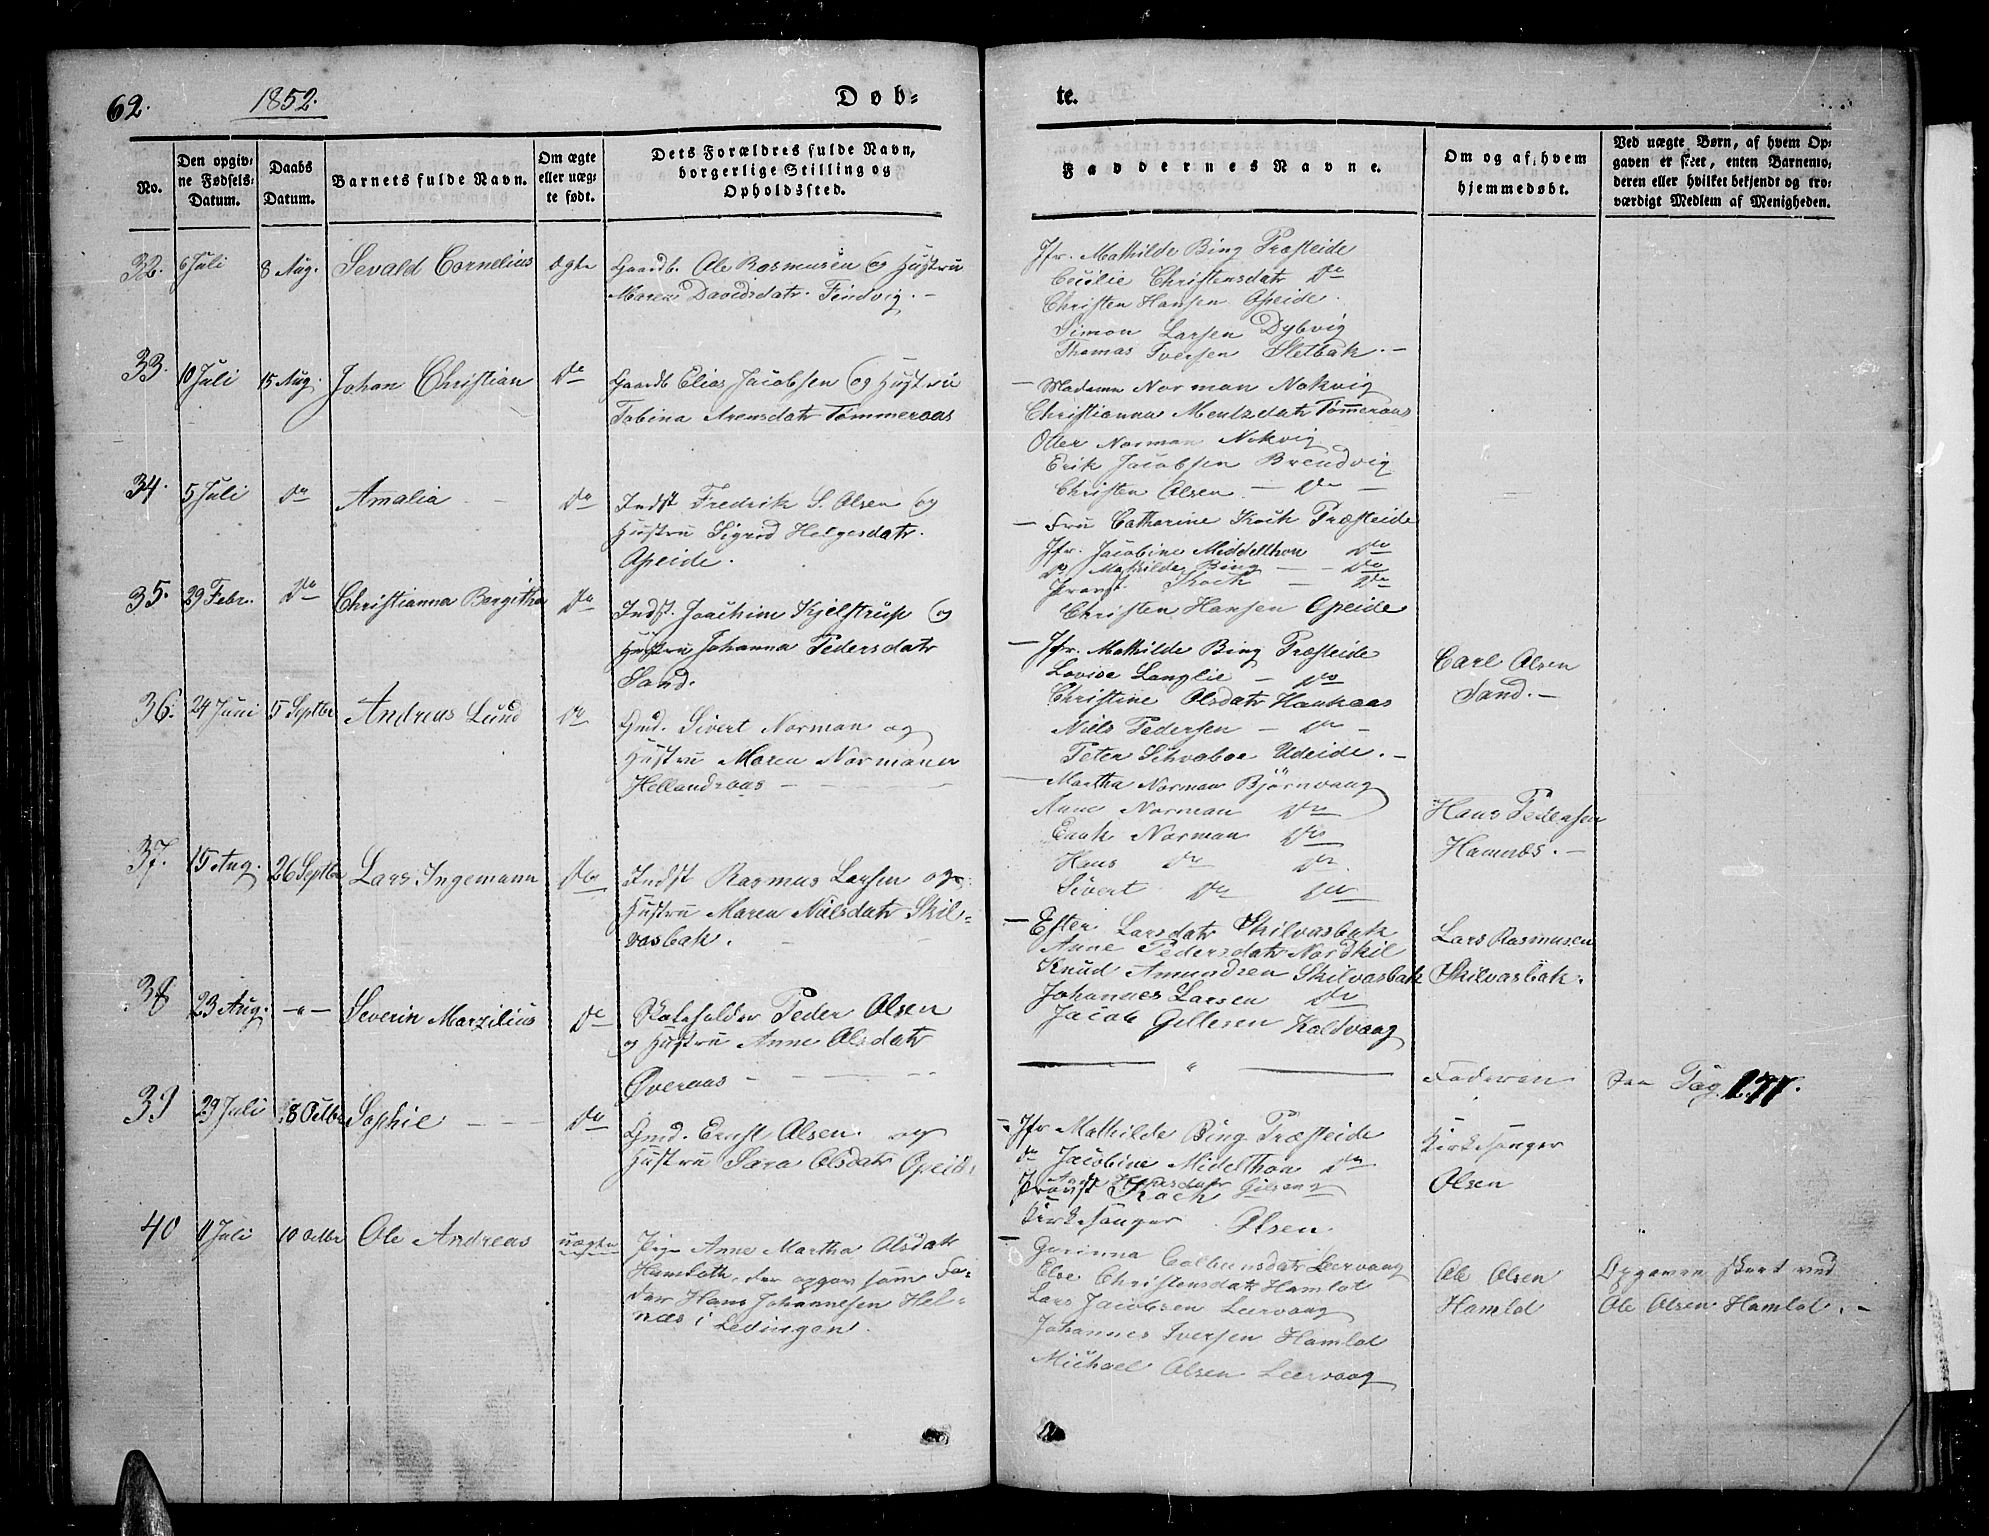 62.
1852.
Døb-
te.
No.
Den opgiv-
ne Fødsels-
Datum.
Daabs
Datum.
Barnets fulde Navn.
Om ægte
eller uæg-
te født.
Dets Forældres fulde Navn,
borgerlige Stilling og
Opholdssted.
Faddernes Navne.
Om og af hvem
hjemmedøbt.
Ved uægte Børn, af hvem Op-
gaven er skeet, enten Barnemo-
deren eller hvilket bekjendt og tro-
værdigt Medlem af Menigheden.
32. 6 Juli 8 Aug. Sevald Cornelius ægte Gaardb. Ole Rasmusen og Hustru
Maren Davidsdatr. Findvig. -
Jfr. Mathilde Bing Præsteide
Cecilie Christensdatr do
Christen Hansen Opeide.
Simon Larsen Dybvig
Thomas Iversen Sletbak. -
33. 10 Juli 15 Aug. Johan Christian do Gaardb Elias Jacobsen og Hustru
Tobina Arensdatr Tømmeraas
- Madame Norman Nokvig
Christianna Mentzdatr Tømeraas
Otter Norman Nokvig
Erik Jacobsen Brendvig
Christen Olsen - do -
34. 5 Juli do Amalia - - do Indst Fredrik S. Olsen og
Hustru Sigrid Helgesdatr.
Opeide.
- Fru Catharine Koch Præsteide
Jfr. Jacobine Middelthon do
do Mathilde Bing - - do
Provst Koch - do
Christen Hansen Opeide
35. 29 Febr. do Christianna Bergitha do Indst. Joachim Kjelstrup og
Hustru Johanna Pedersdatr
Sand.
- Jfr. Mathilde Bing Præsteide
Lovise Langlie - do
Christine Olsdatr Haukaas
Niels Pedersen - do -
Peter Schvaboe Udeide. -
Carl Olsen
Sand. -
36. 24 Juni 5 Septbr Andreas Lund do Gmd. Sivert Norman og
Hustru Maren Normann
Hellandraas -
- Martha Norman Björnvaag
Anne Norman do
Enok Norman do
Hans do do
Sivert do do
Hans Pedersen
Hamnæs. -
37. 15 Aug. 26 Septbr Lars Ingemann do Indst Rasmus Larsen og
Hustru Maren Nilsdatr Skil-
vasbak.
- Ester Larsdatr Skilvasbak
Anne Pedersdatr Nordskil
Knud Amundsen Skilvasbak
Johannes Larsen do
Jacob Gellesen Kaldvaag
Lars Rasmusen
Skilvasbak.
38 23 Aug. -"- Severin Marzilius do Peder Olsen
og Hustru Anne Olsdatr
Øveraas -
"
Faderen
Pag. 277.
39 29 Juli 8 Octbr Sophie - - - do Gmd. Ernst Olsen og
Hustru Sara Olsdatr Opeid.
- Jfr Mathilde Bing Præsteide
do Jacobine Midelthon do
Provst Koch
Kirkesanger Olsen
Kirkesanger
Olsen
40 11 Juli 10 Octbr Ole Andreas uægte Pige Anne Martha Olsdatr
Hamloth, der opgav som Fa-
der Hans Johannesen Hel-
næs i Lødingen.
- Gurinna Colbensdatr Leervaag
Else Christensdatr Hamlot
Lars Jacobsen Leervaag
Johannes Iversen Hamlot
Michael Olsen Leervaag
Ole Olsen
Hamlot
Opgaven skeet ved
Ole Olsen Hamlot. -